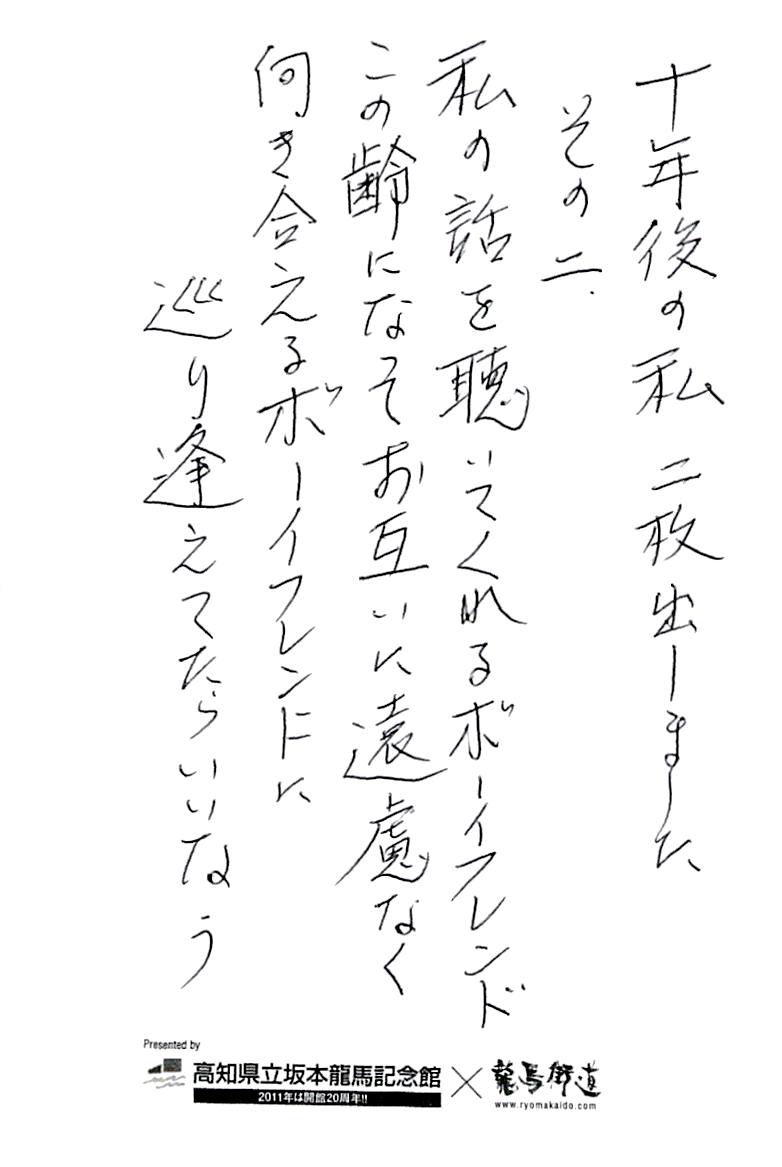 十年後の私 二枚出しました
その二.
私の話を聴いてくれるボーイフレンド
この齢になってお互いに遠慮なく
向き合えるボーイフレンドに
巡り逢えてたらいいなう
Presented by
高知県立坂本龍馬記念館×龍馬街道
2011年は開館20周年!!
www.ryomakaido.com